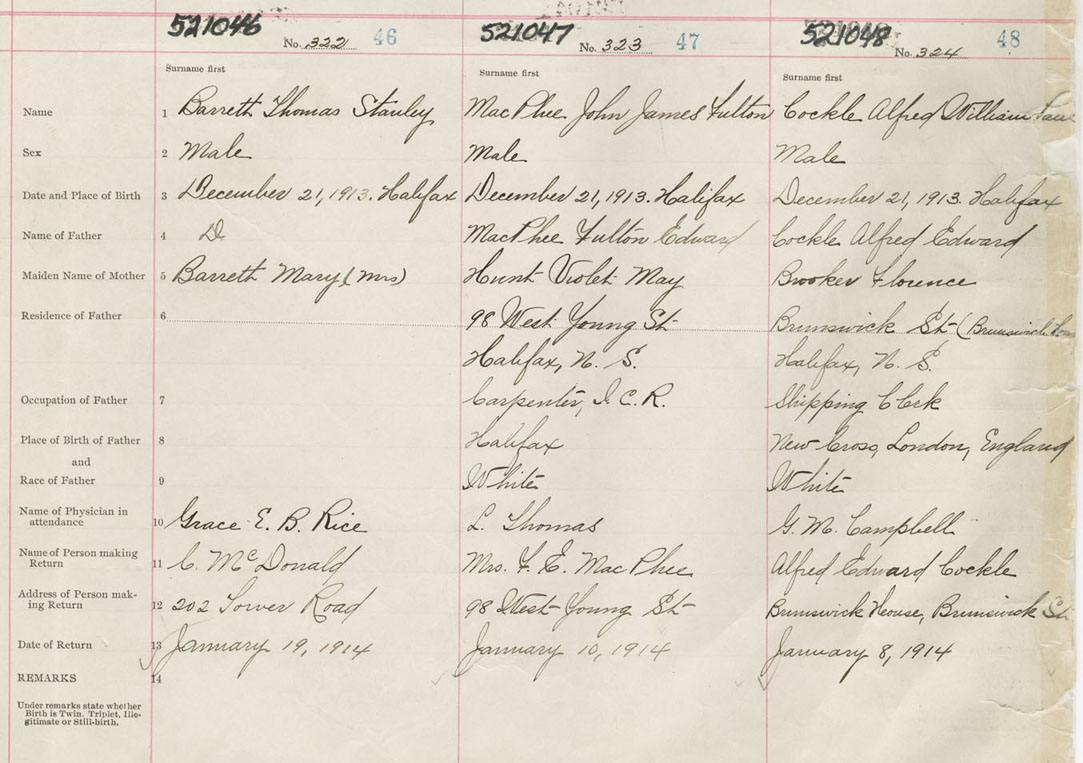 521046 521047 521048
No. 322 46 No. 323 47 No. 324 48
Surname first Surname first Surname first
Name 1 Barrett Thomas Stanley MacPhee John James Fulton Cockle Alfred William
Sex 2 Male Male Male
Date and Place of Birth 3 December 21, 1913. Halifax December 21, 1913. Halifax December 21, 1913. Halifax
Name of Father 4 D MacPhee Fulton Edward Cockle Alfred Edward
Maiden Name of Mother 5 Barrett Mary (Mrs) Hunt Violet May Brooker Florence
Residence of Father 6 98 West Young St Brunswick St (Brunswick
Halifax, N. S. Halifax, N. S.
Occupation of Father 7 Carpenter, I. C. R. Shipping Clerk
Place of Birth of Father 8 Halifax New Cross, London, England
and
Race of Father 9 White White
Name of Physician in attendance 10 Grace E. B. Rice L. Thomas G. M. Campbell
Name of Person making Return 11 C. McDonald Mrs. F. E. MacPhee Alfred Edward Cockle
Address of Person mak-
ing Return 12 202 Tower Road 98 West Young St Brunswick House, Brunswick St.
Date of Return 13 January 19, 1914 January 10, 1914 January 8, 1914
REMARKS 14
Under remarks state whether
Birth is Twin, Triplet, Ille-
gitimate or Still-birth.